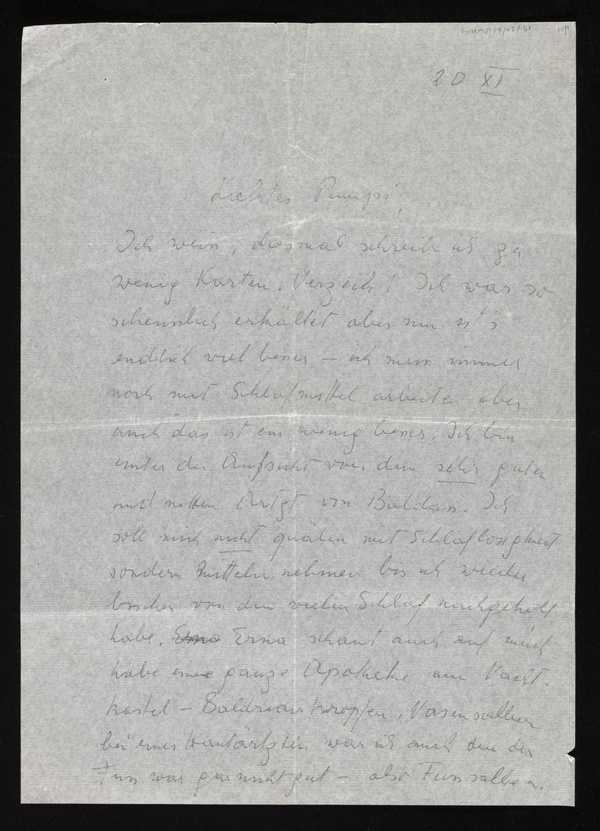 20 XI
Liebstes
Ich weiss, diesmal schreib ich ga
wenig Karten. Verzeih! Ich war so
scheusslich erkältet aber nun ist's
endlich viel besser – ich muss immer
noch mit Schlafmittel arbeiten aber
auch das ist ein wenig besser. Ich bin
unter der Aufsicht von dem sehr guten
und netten Arzt von Baldass. Ich
soll mich nicht quälen mit Schlaflosigkeit
sondern Mitteln nehmen bis ich wieder
bischen von dem vielen Schlaf nachgeholt
habe. Erna schaut auch auf mich
habe eine ganze Apotheke am Nacht-
kastel – Baldriantropfen, Nasensalben
bei einer Hautärztin war ich auch denn der
Fuss war gar nicht gut – also Fussalben.